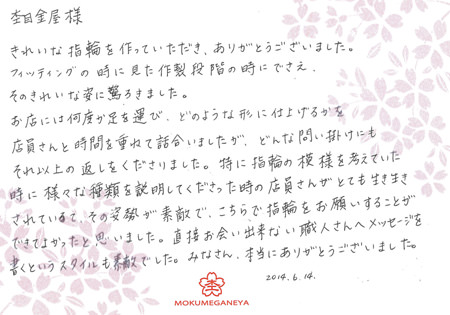 杢目金屋様
きれいな指輪を作っていただき、ありがとうございました。
フィッティングの時に見た作製段階の時にでさえ、
そのきれいな姿に驚ろきました。
お店には何度か足を運び、どのような形に仕上げるかを
店員さんと時間を重ねて話合いましたが、どんな問い掛けにも
それ以上の返しをくださりました。特に指輪の模様を考えていた
時に様々な種類を説明してくださった時の店員さんがとても生き生き
されているて、その姿勢が素敵で、こちらで指輪をお願いすることが
できてよかったと思いました。直接お会い出来ない職人さんへメッセージを
書くというスタイルも素敵でした。みなさん、本当にありがとうございました。
2014.6.14.
MOKUMEGANEYA